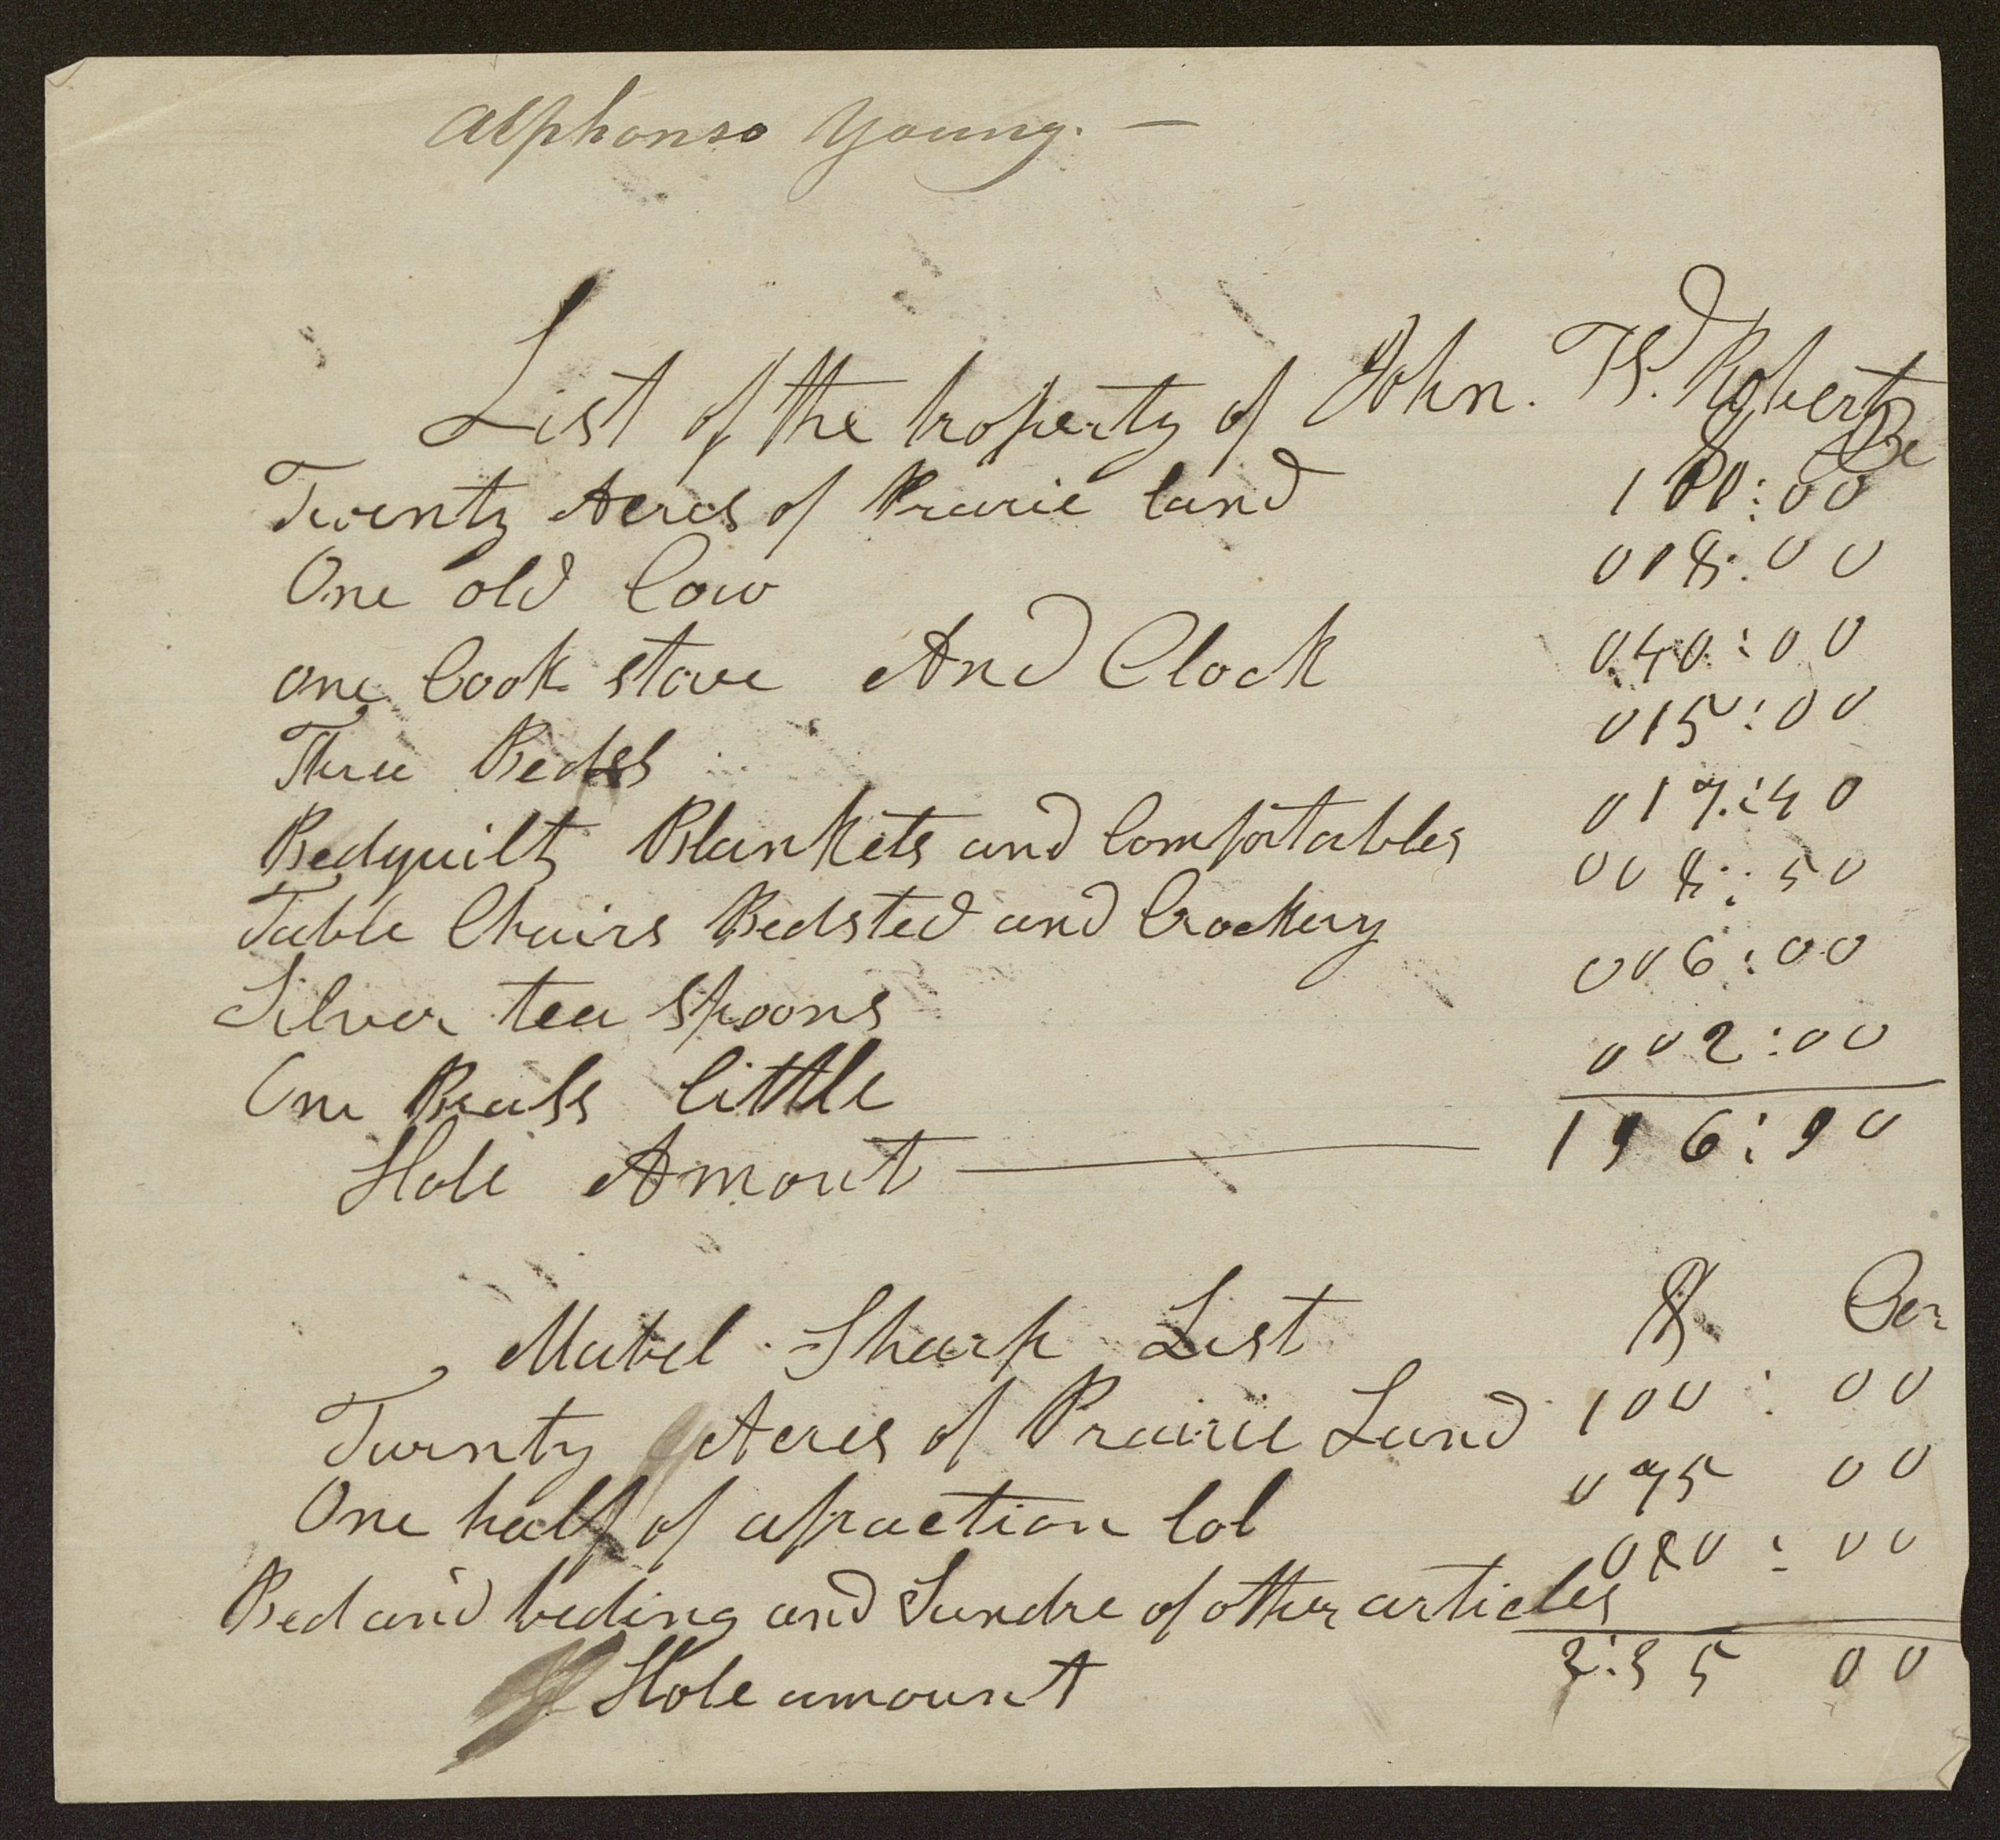 Alphonso Young. —
List of the Property of John. W. Roberts
$ Ce
Twenty Acres of Prarie land 100:00
One old Cow 018:00
one Cook stove And Clock 040:00
Three Beds 015:00
Bedquilts Blankets and Comfortables 017:40
Table Chairs Bedsted and Crockery 008:50
Silver tea Spoons 006:00
One Brass little 002:00
Hole Amout — 196:90
Mabel Sharp List $ Cen
Twenty Acres of Prairie Land 100:00
One half of afraction lot 075 00
Bed and beding and Sundre of other articles 080:00
Hole amount 2:55 00